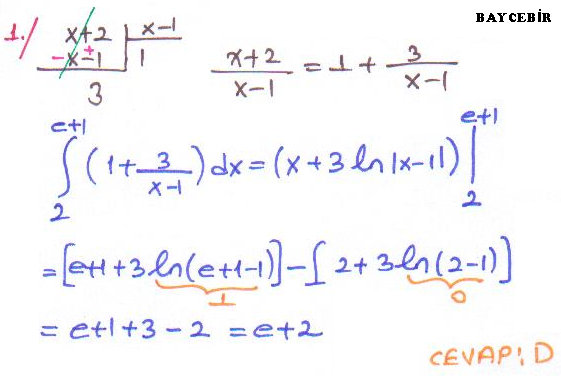 BAYCEBİR
1./ x+2 | x-1
- x-1 + | 1
3
x+2/x-1 = 1 + 3/x-1
∫₂^(e+1) (1 + 3/x-1) dx = (x + 3 ln|x-1|) |₂^(e+1)
= [e+1 + 3 ln(e+1-1)] - [2 + 3 ln(2-1)]
1 0
= e+1+3-2 = e+2
CEVAP: D